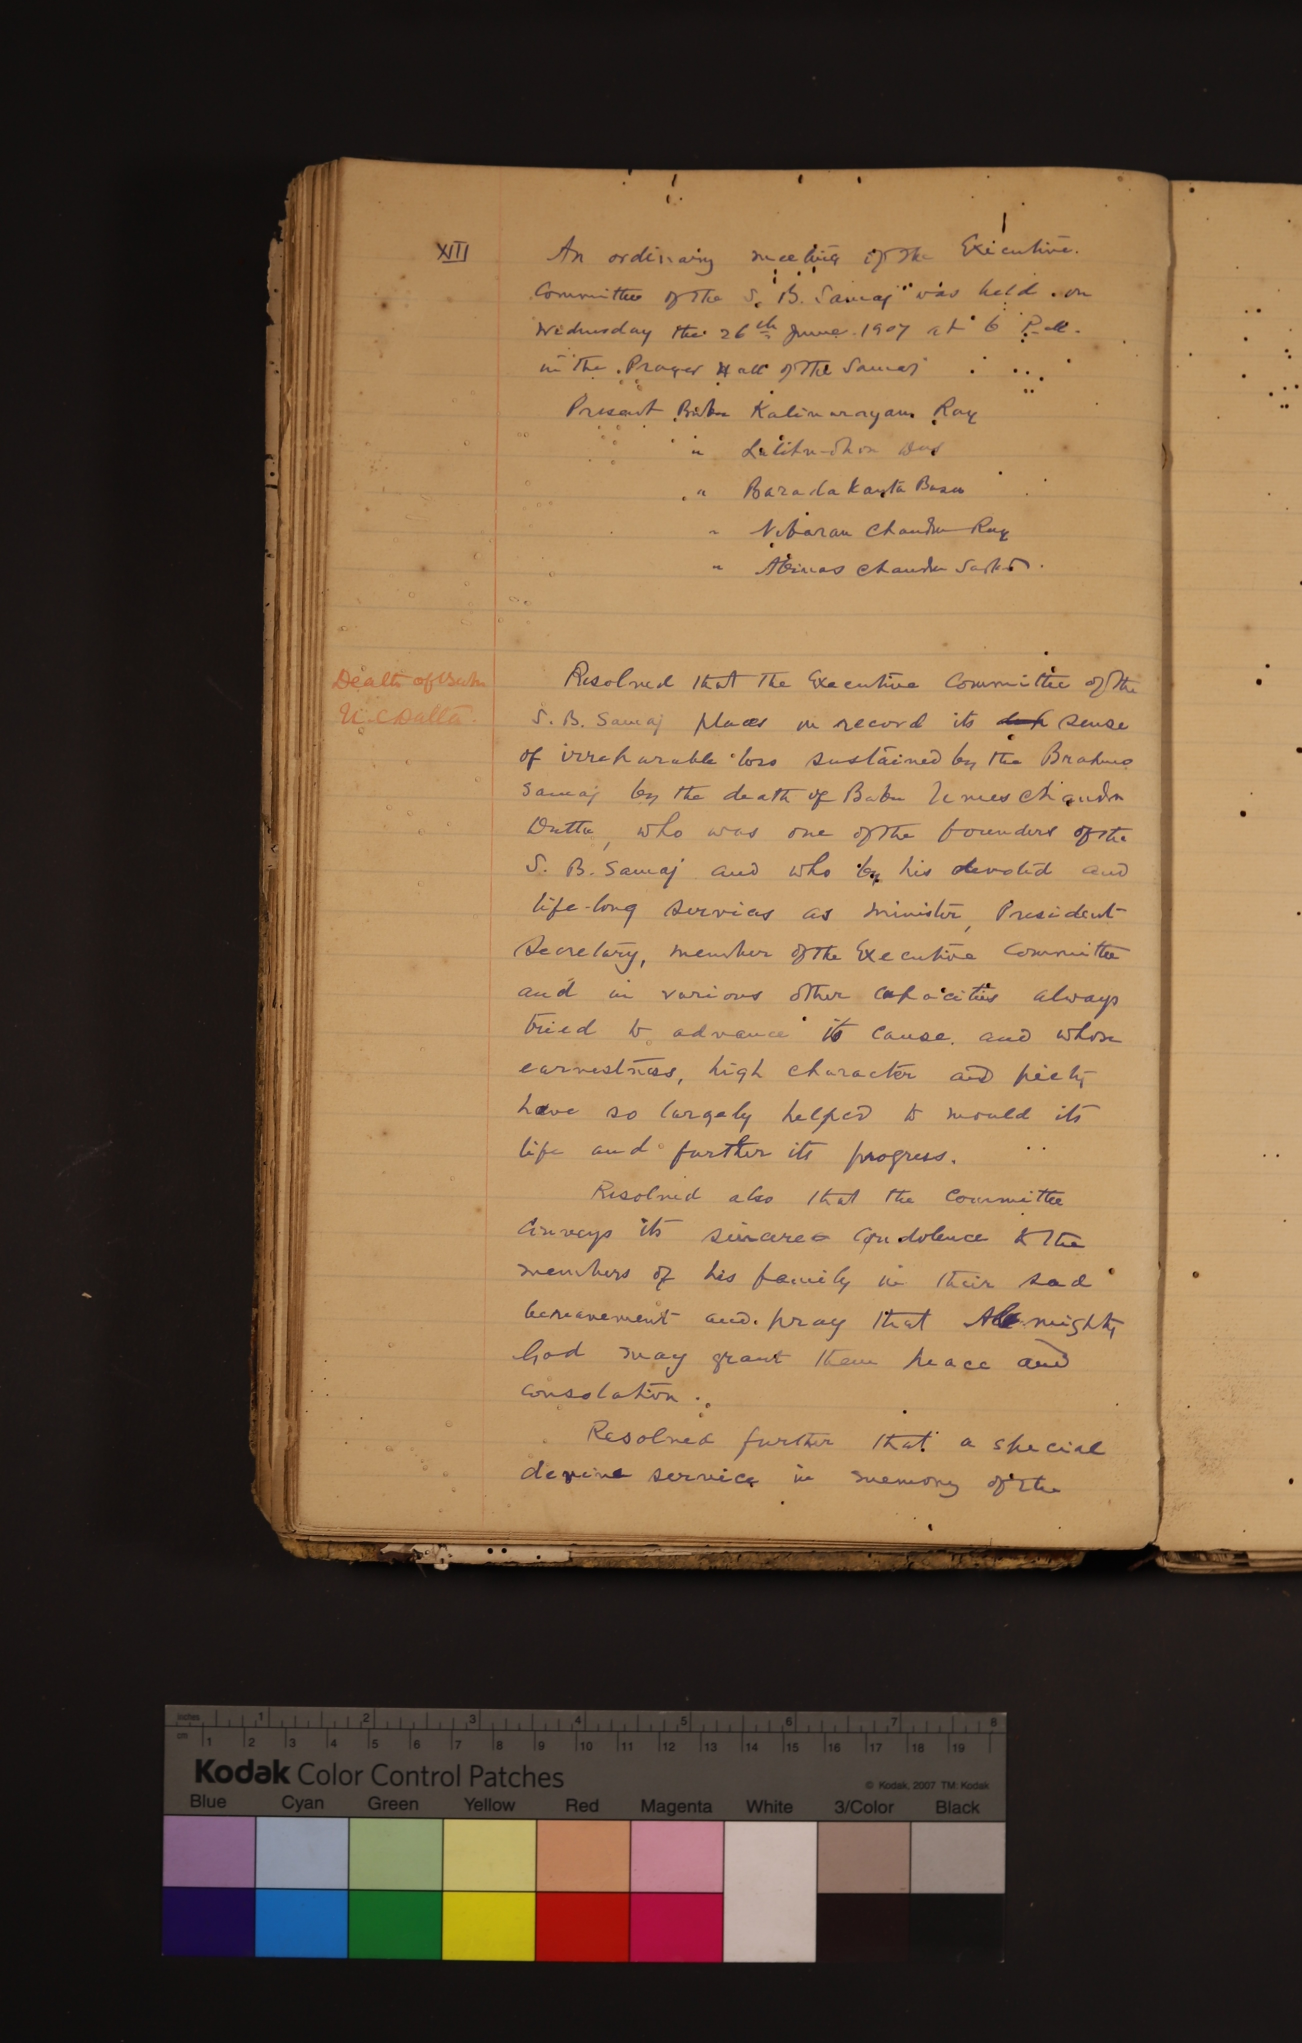 XIII
An ordinary meeting of the Executive
Committee of the S. B. Samaj was held on
Wednesday the 26th June 1907 at 6 P.M.
in the Prayer Hall of the Samaj
Present Babu Kalinarayan Ray
" Lalitmohon Das
" Barada Kanta Basu
" Nibaran Chandra Ray
" Abinas Chandra Sarkar
Death of Babu
U. C Datta
Resolved that the Executive Committee of the
S. B. Samaj places on record its deep sense
of irreparable loss sustained by the Brahmo
Samaj by the death of Babu Umes Chandra
Dutta, who was one of the founders of the
S. B. Samaj and who by his devoted and
life-long services as minister, President
Secretary, member of the Executive Committee
and in various other capacities always
tried to advance its cause and whose
earnestness, high character and piety
have so largely helped to mould its
life and further its progress.
Resolved also that the Committee
conveys its sincere condolence to the
members of his family in their sad
bereavement and pray that Almighty
God may grant them peace and
consolation.
Resolved further that a special
devine service in memory of the
inches 1 2 3 4 5 6 7 8
cm 1 2 3 4 5 6 7 8 9 10 11 12 13 14 15 16 17 18 19
Kodak Color Control Patches
© Kodak, 2007 TM: Kodak
Blue Cyan Green Yellow Red Magenta White 3/Color Black